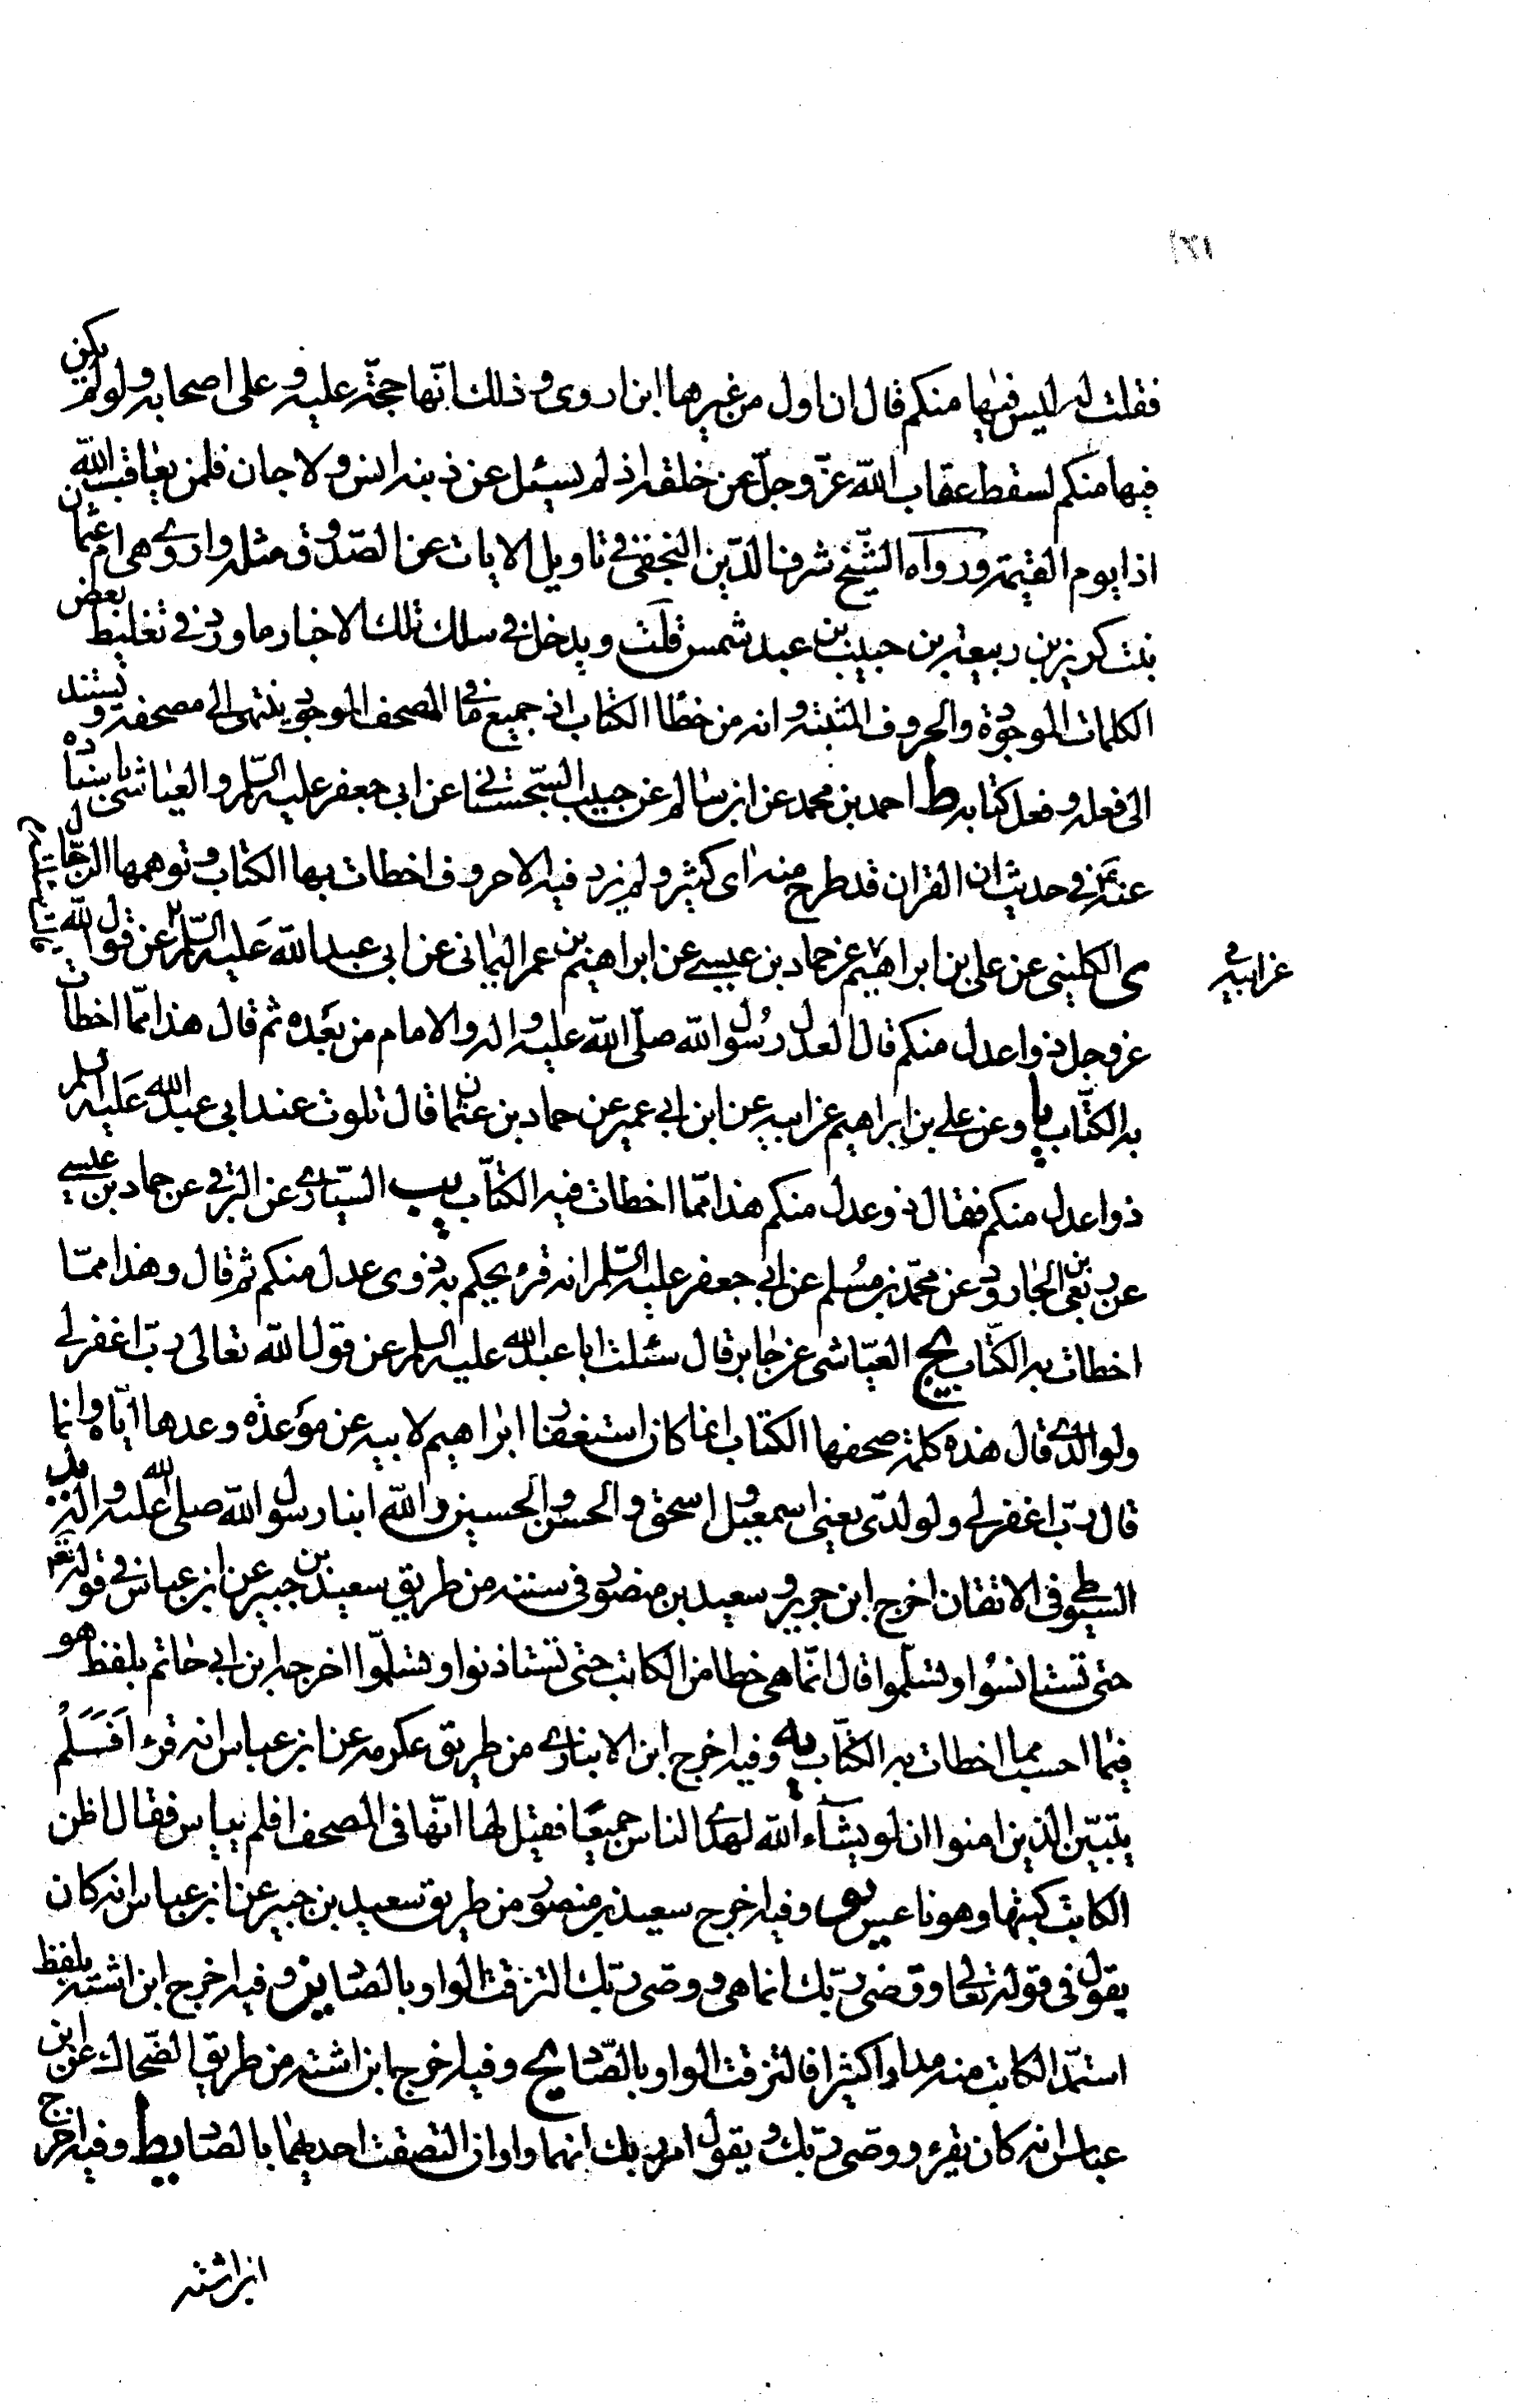 فقلت له ليس فيها منكم قال ان اول من غيرها ابن اروى وذلك انها حجة عليه وعلى اصحابه ولو لم يكن
فيها منكم لسقط عقاب الله عز وجل عن خلقه اذ لم يسئل عن ذنبه انس ولا جان فلمن يعاقب الله
اذا يوم القيمة ورواه الشيخ شرف الدين النجفي في تاويل الايات عن الصدوق مثله واروى هي ام عثمان
بنت كريز بن ربيعة بن حبيب بن عبد شمس قلت ويدخل في سلك تلك الاخبار ما ورد في تغليط بعض
الكلمات الموجودة والحروف المثبتة وانه من خطا الكتاب اذ جميع ما في المصحف الموجود ينتهى الى مصحفه ويستند
الى فعله وفعل كتابه ط احمد بن محمد عن ابن سالم عن حبيب السجستاني عن ابي جعفر عليه السلم والعياشي باسناده
عنه في حديث ان القران قد طرح منه اى كثير ولم يزد فيه الا حروف اخطات بها الكتاب وتوهمها الرجال
ى الكليني عن علي بن ابراهيم عن حماد بن عيسى عن ابراهيم بن عمر اليماني عن ابي عبد الله عليه السلم عن قول الله
عن ابيه
عز وجل ذوا عدل منكم قال العدل رسول الله صلى الله عليه واله والامام من بعده ثم قال هذا مما اخطات
به الكتاب يا وعن علي بن ابراهيم عن ابيه عن ابن ابي عمير عن حماد بن عثمان قال تلوت عند ابي عبد الله عليه السلم
ذوا عدل منكم فقال ذو عدل منكم هذا مما اخطات فيه الكتاب يب السياري عن البرقي عن حماد بن عيسى
عن ربعي بن الجارود عن محمد بن مسلم عن ابي جعفر عليه السلم انه قرء يحكم به ذوى عدل منكم ثم قال وهذا مما
اخطات به الكتاب يج العياشي عن جابر قال سئلت ابا عبد الله عليه السلم عن قول الله تعالى رب اغفر لي
ولوالدي قال هذه كلمة صحفها الكتاب انما كان استغفار ابراهيم لابيه عن موعدة وعدها اياه وانما
قال رب اغفر لي ولولدي يعني اسمعيل واسحق والحسن والحسين والله ابنا رسول الله صلى الله عليه واله يد
السيوطي في الاتقان اخرج ابن جرير وسعيد بن منصور في سننه من طريق سعيد بن جبير عن ابن عباس في قوله تعم
حتى تستانسوا وتسلموا قال انما هي خطا من الكاتب حتى تستاذنوا وتسلموا اخرجه ابن ابي حاتم بلفظ هو
فيما احسب مما اخطات به الكتاب يه وفيه اخرج ابن الانباري من طريق عكرمه عن ابن عباس انه قرء افلم
يتبين الذين امنوا ان لو يشاء الله لهدى الناس جميعا فقيل لها انها في المصحف افلم يياس فقال اظن
الكاتب كتبها وهو ناعس يو وفيه اخرج سعيد بن منصور من طريق سعيد بن جبير عن ابن عباس انه كان
يقول في قوله تعالى وقضى ربك انما هي ووصى ربك التزقت الواو بالصاد يز وفيه اخرج ابن اشته بلفظ
استمد الكاتب منه مدادا كثيرا فالتزقت الواو بالصاد يح وفيه اخرج ابن اشته من طريق الضحاك عن ابن
عباس انه كان يقرء ووصى ربك ويقول امر ربك انهما واوان التصقت احديهما بالصاد يط وفيه اخرج
ابن اشته